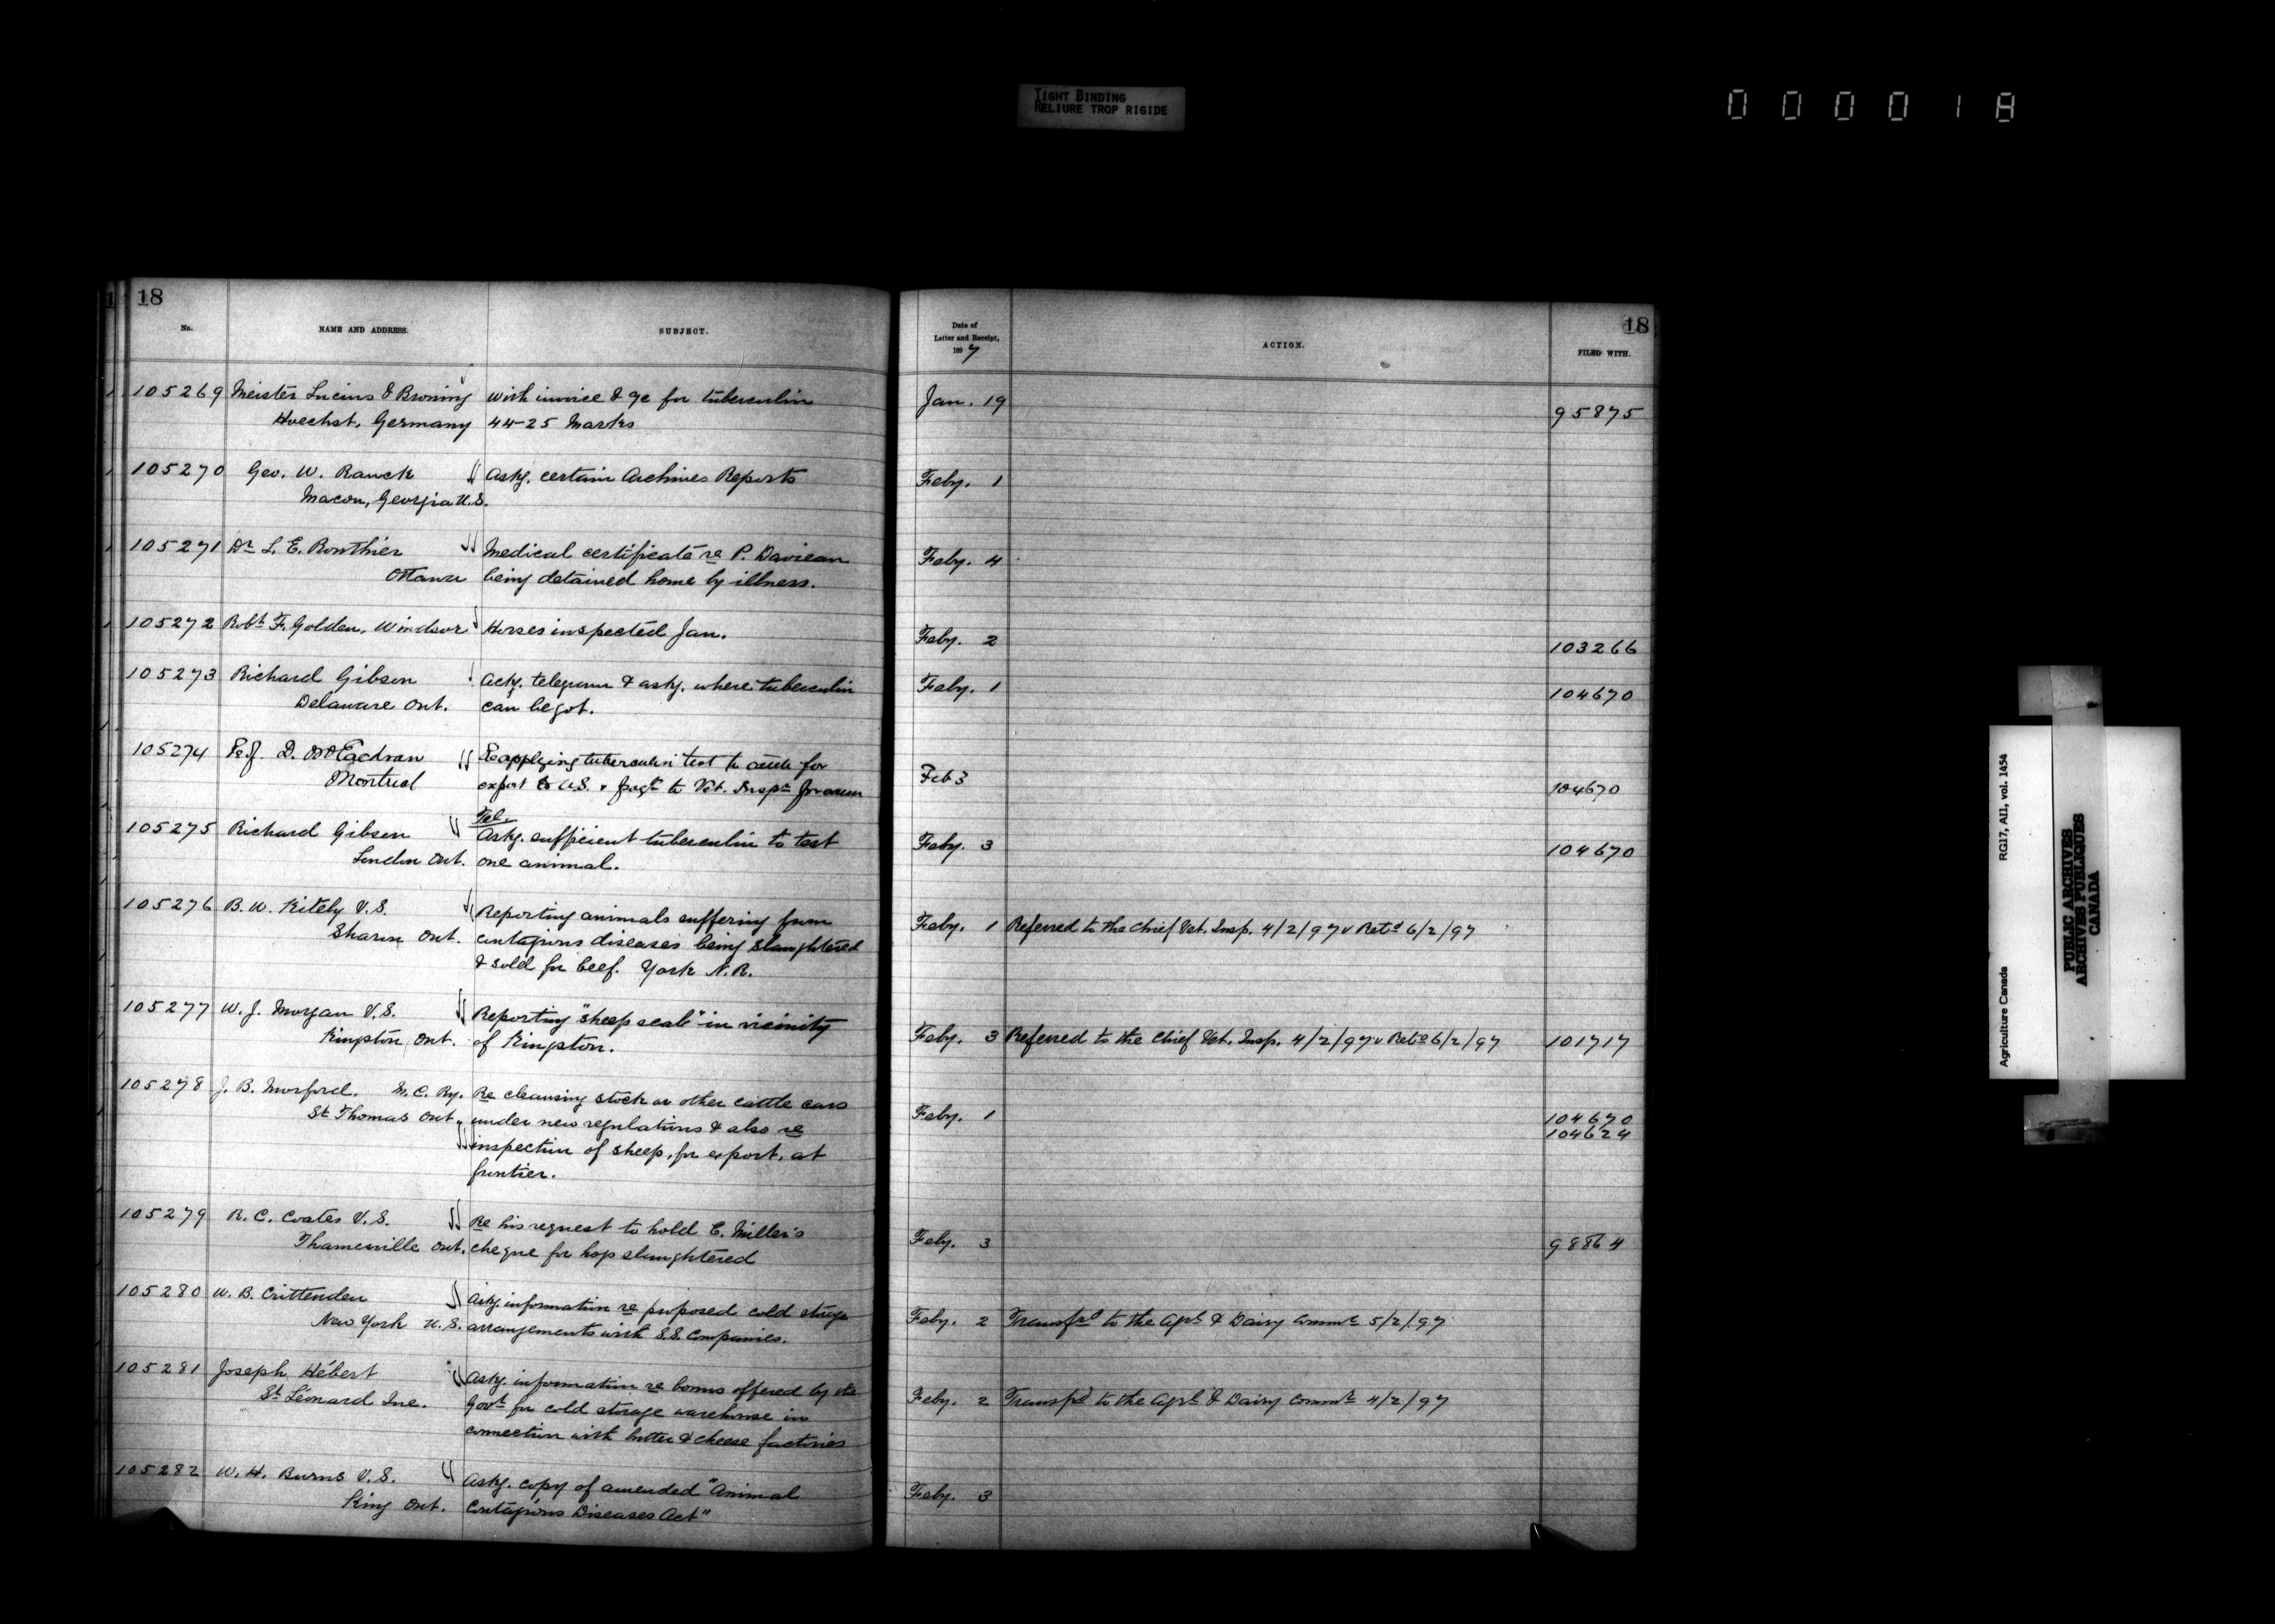 TIGHT BINDING
RELIURE TROP RIGIDE
000018
18
No. NAME AND ADDRESS. SUBJECT.
Date of
Letter and Receipt,
1897
ACTION. FILED WITH.
18
105269 Meister Lucius & Browning with invoice & % for tuberculin Jan. 19 95875
Hoechst, Germany 44-25 Marks
105270 Geo. W. Ranck Askg. certain Archives Reports Feby. 1
Macon, Georgia U.S.
105271 Dr L. E. Bouthier Medical certificate re P. Feby. 4
Ottawa being detained home by illness.
105272 Robt F. Golden, Windsor Horses inspected Jan. Feby. 2 103266
105273 Richard Gibson Ackg. telegram & askg. where tuberculin Feby. 1 104670
Delaware Ont. can be got.
105274 Prof. D. McEachran Re applying tuberculin test to cattle for Feb 3 104670
Montreal export to U.S. & to Vet. Inspr
Tel.
105275 Richard Gibson Askg. sufficient tuberculin to test Feby. 3 104670
London Ont. one animal.
105276 B. W. Kitely V.S. Reporting animals suffering from Feby. 1 Referred to the Chief Vet. Insp. 4/2/97 & Retd 6/2/97
Sharon Ont. contagious diseases being slaughtered
& sold for beef. York N.R.
105277 W. J. Morgan V.S. Reporting "sheep scab" in vicinity Feby. 3 Referred to the Chief Vet. Insp. 4/2/97 & Retd 6/2/97 101717
Kingston, Ont. of Kingston.
105278 J. B. Morford. M. C. Ry. Re cleansing stock or other cattle cars Feby. 1 104670
St Thomas Ont. under new regulations & also re 104624
inspection of sheep, for export, at
frontier.
105279 R. C. Coates V.S. Re his request to hold C. Miller's Feby. 3 98864
Thamesville Ont. cheque for hogs slaughtered
105280 W. B. Crittenden Askg. information re proposed cold storage Feby. 2 Transfrd to the Agrl & Dairy Commr 5/2/97
New York U.S. arrangements with S.S. Companies.
105281 Joseph Hébert Askg. information re bonus offered by the Feby. 2 Transfd to the Agrl & Dairy Commr 4/2/97
St Léonard Govt for cold storage warehouse in
connection with butter & cheese factories
105282 W. H. Burns V.S. Askg. copy of amended "Animal Feby. 3
King Ont. Contagious Diseases Act"
Agriculture Canada RG17, AII, vol. 1454
PUBLIC ARCHIVES
ARCHIVES PUBLIQUES
CANADA